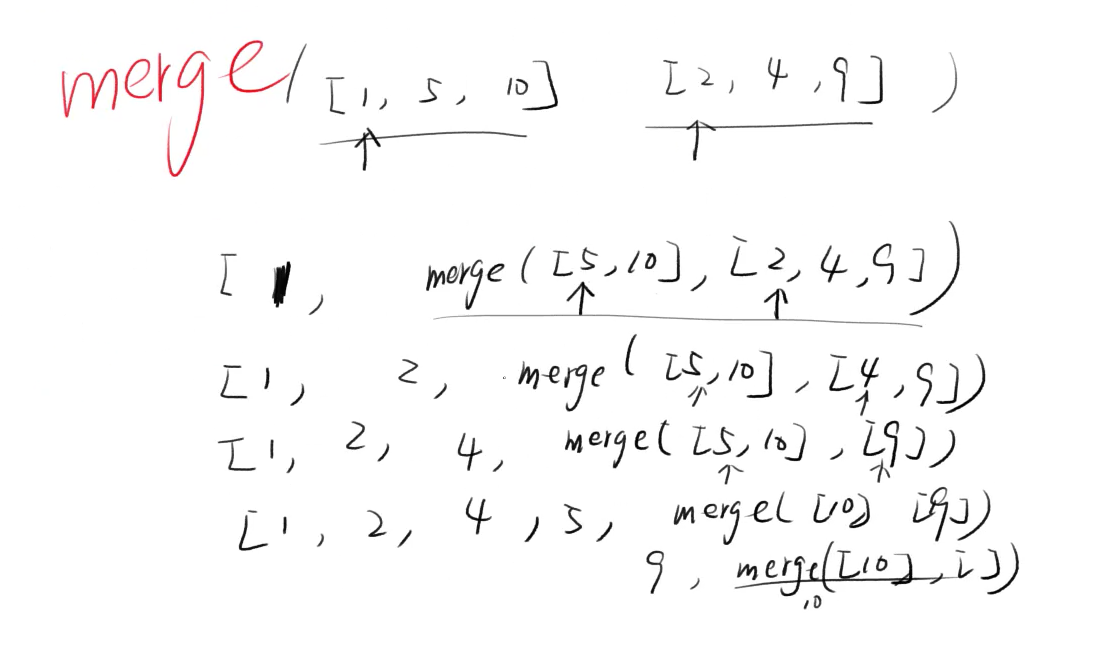 merge( [1, 5, 10] [2, 4, 9] )
[ 1, merge ( [5, 10], [2, 4, 9] )
[1, 2, merge ( [5, 10], [4, 9])
[1, 2, 4, merge( [5, 10], [9])
[1, 2, 4, 5, merge( [10] [9])
9, merge([10], [])
10